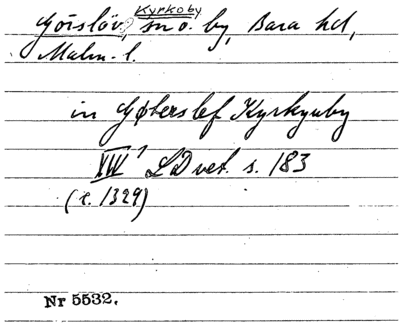 Kyrkoby
Görslöv, sn o. by, Bara hd,
Malm. l.
in Gøterslef Kyrkyuby
XIV¹ LDvet. s. 183
(c. 1329)
Nr 5532.